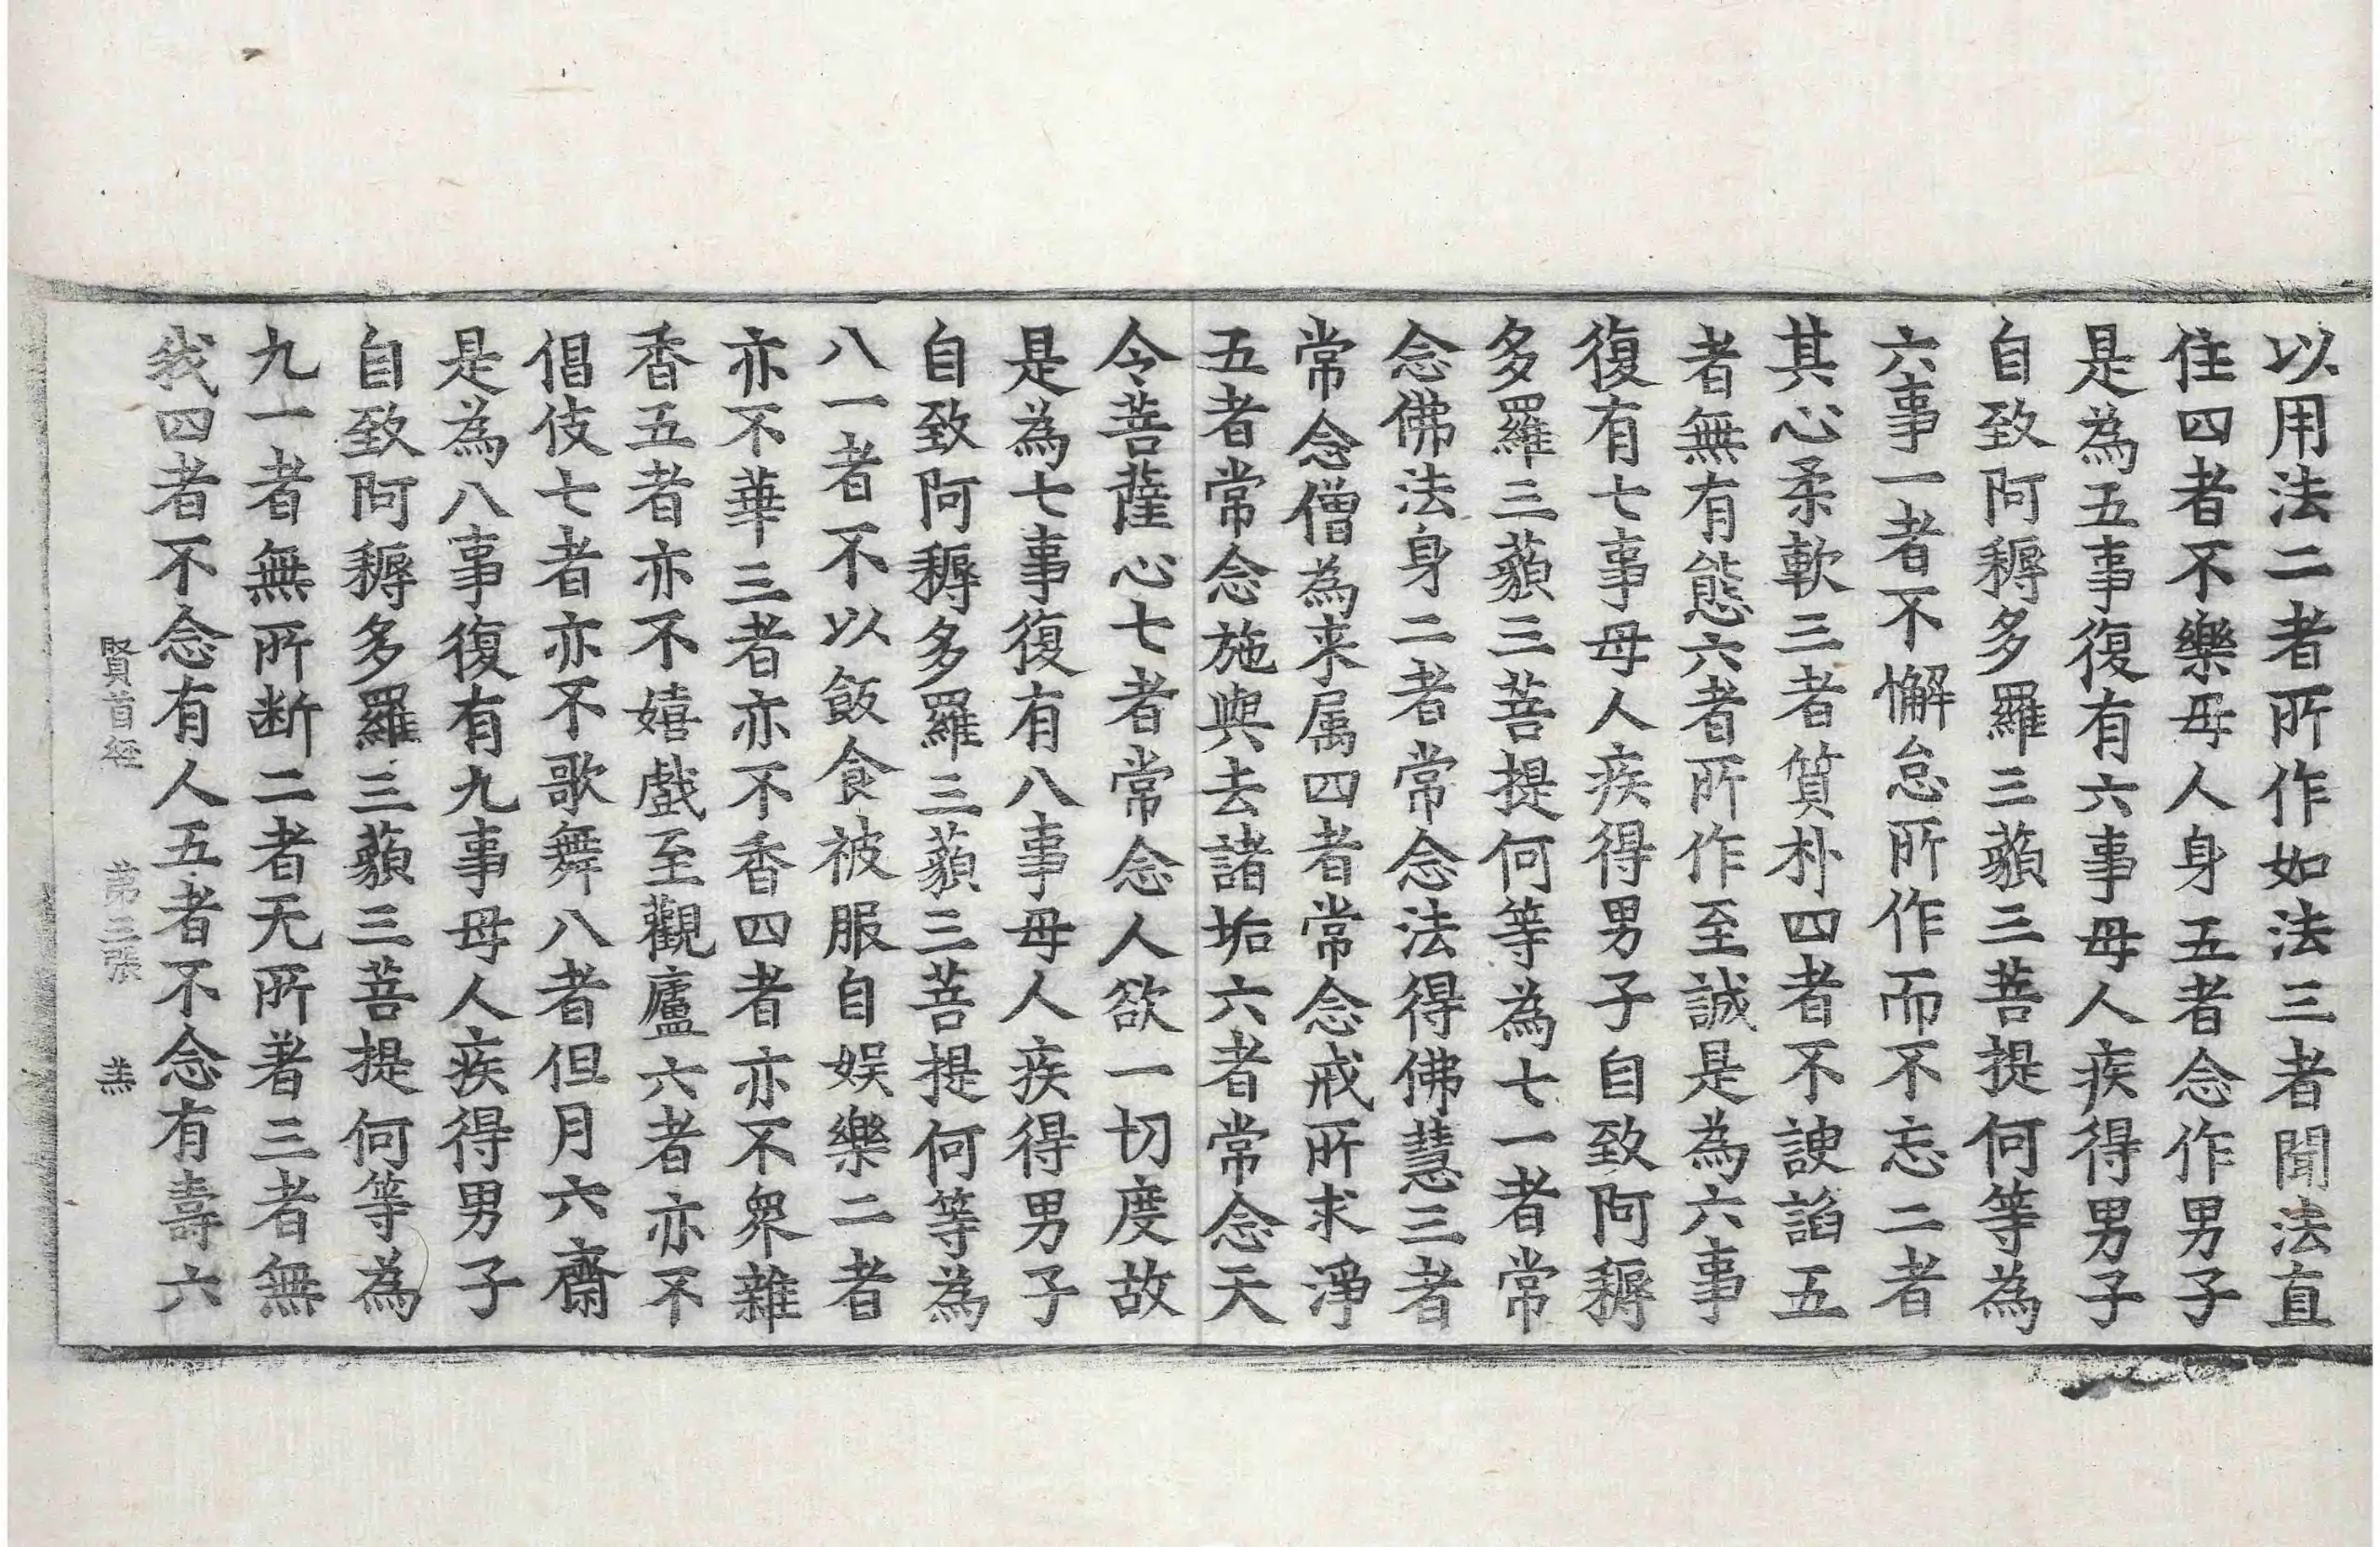 以用法二者所作如法三者聞法直
住四者不樂母人身五者念作男子
是為五事復有六事母人疾得男子
自致阿耨多羅三藐三菩提何等為
六事一者不懈怠所作而不忘二者
其心柔軟三者質朴四者不諛諂五
者無有態六者所作至誠是為六事
復有七事母人疾得男子自致阿耨
多羅三藐三菩提何等為七一者常
念佛法身二者常念法得佛慧三者
常念僧為来属四者常念戒所求淨
五者常念施與去諸垢六者常念天
令菩薩心七者常念人欲一切度故
是為七事復有八事母人疾得男子
自致阿耨多羅三藐三菩提何等為
八一者不以飯食被服自娛樂二者
亦不華三者亦不香四者亦不衆雜
香五者亦不嬉戲至觀廬六者亦不
倡伎七者亦不歌舞八者但月六齋
是為八事復有九事母人疾得男子
自致阿耨多羅三藐三菩提何等為
九一者無所断二者无所著三者無
我四者不念有人五者不念有壽六
賢首經 第三張 恙